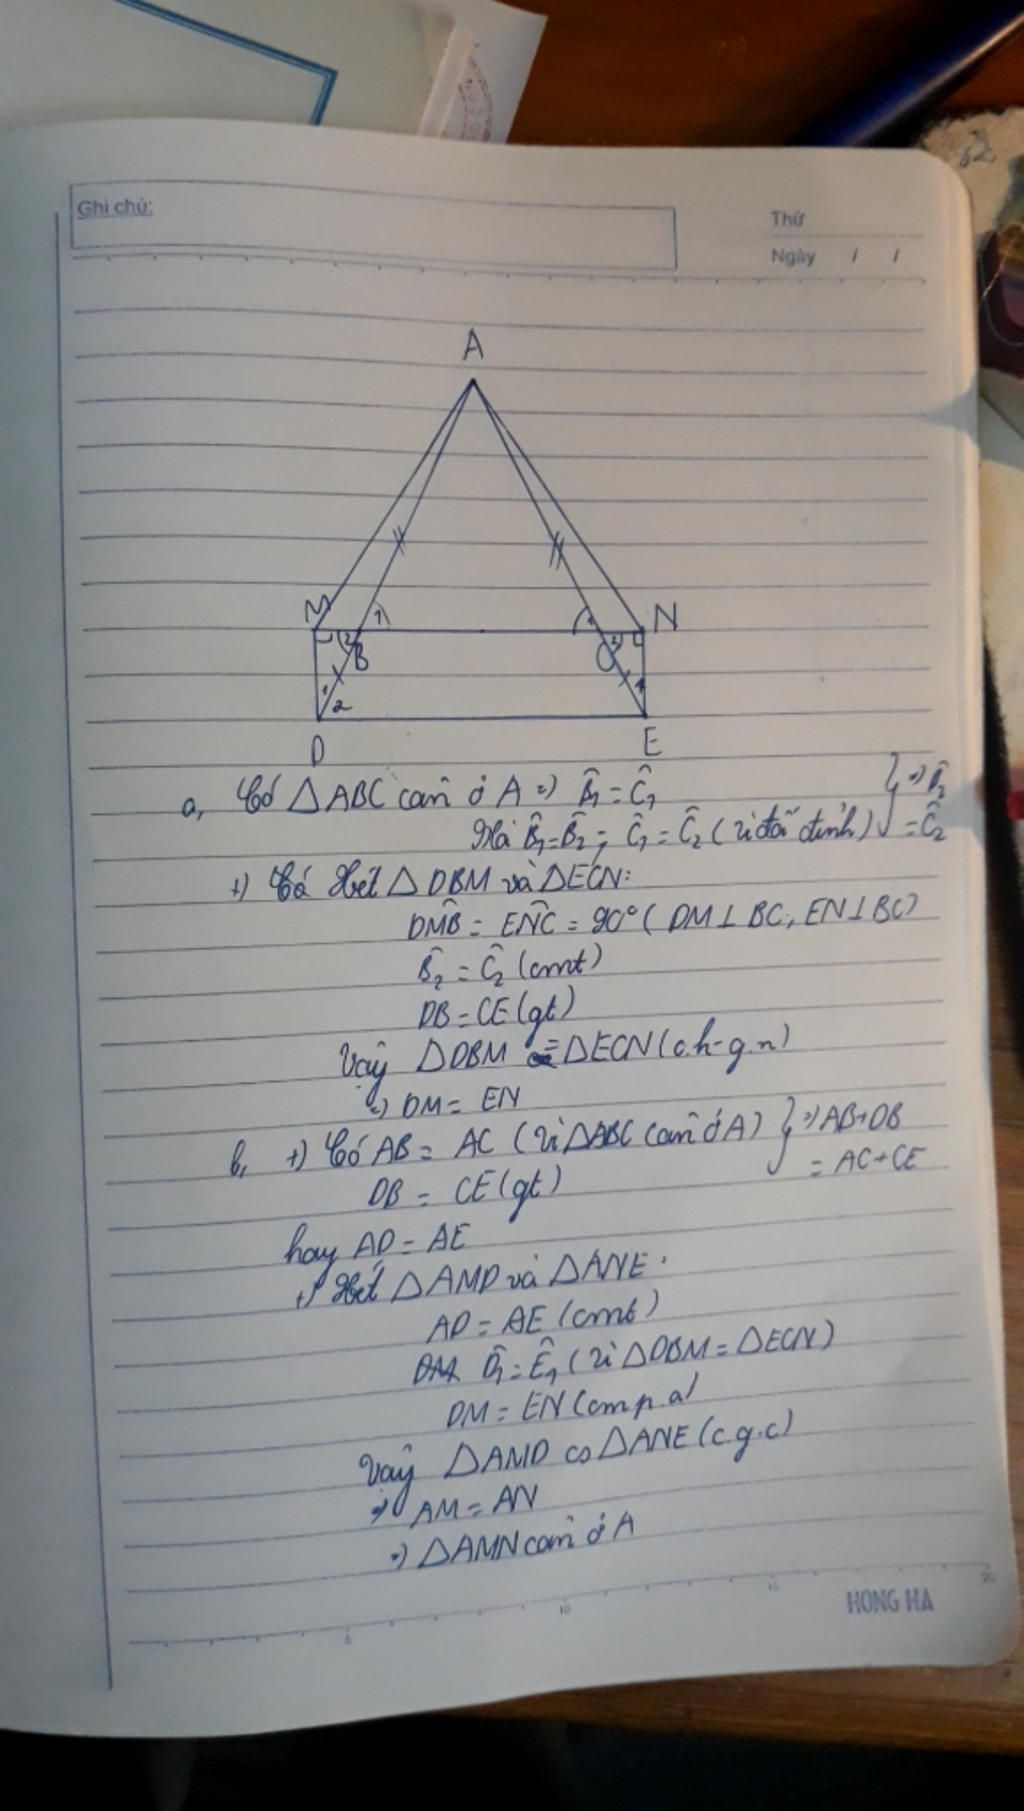 Ghi chú:
Thứ
Ngày / /
A
M
N
1
1
2
2
B
C
1
1
2
D
E
a, Có △ABC cân ở A => B̂₁ = Ĉ₁
Mà B̂₁ = B̂₂ ; Ĉ₁ = Ĉ₂ (vì đối đỉnh) } => B̂₂ = Ĉ₂
+) Xét △DBM và △ECN:
DM̂B = EN̂C = 90° (DM⊥BC, EN⊥BC)
B̂₂ = Ĉ₂ (cmt)
DB = CE (gt)
Vậy △DBM = △ECN (c.h-g.n)
=) DM = EN
b, +) Có AB = AC (vì △ABC cân ở A) } =) AB+DB
DB = CE (gt) = AC+CE
hay AD = AE
+) Xét △AMD và △ANE:
AD = AE (cmt)
D̂₁ = Ê₁ (vì △DBM = △ECN)
DM = EN (cm p.a)
Vậy △AMD ∽ △ANE (c.g.c)
=) AM = AN
=) △AMN cân ở A
5 10 15 20
HONG HA